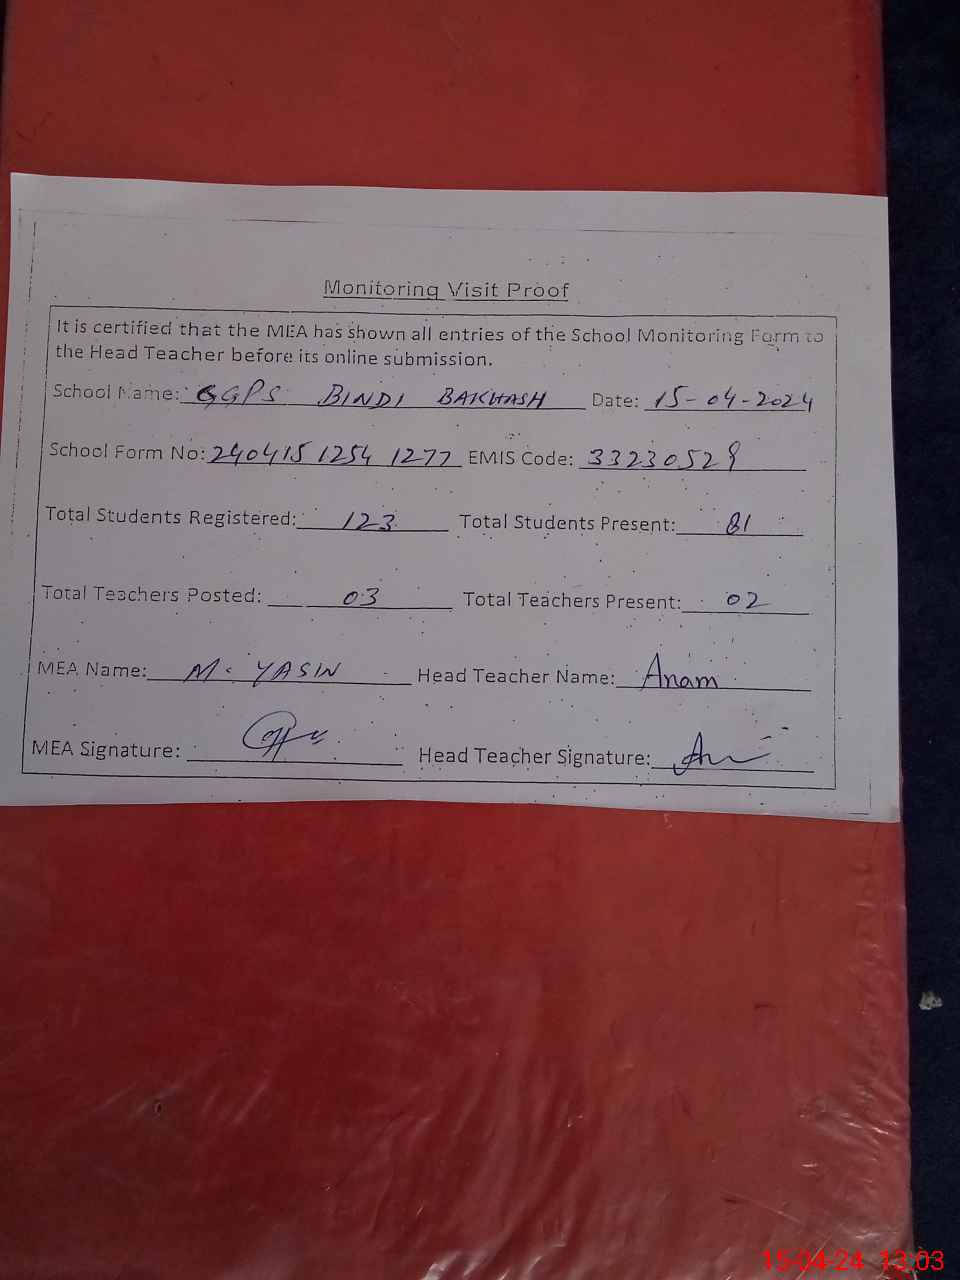 Monitoring Visit Proof
It is certified that the MEA has shown all entries of the School Monitoring Form to
the Head Teacher before its online submission.
School Name: GGPS BINDI BAKHASH Date: 15-04-2024
School Form No: 240415 1254 1277 EMIS Code: 33230529
Total Students Registered: 123 Total Students Present: 81
Total Teachers Posted: 03 Total Teachers Present: 02
MEA Name: M. YASIN Head Teacher Name: Anam
MEA Signature: Head Teacher Signature:
15-04-24 13:03